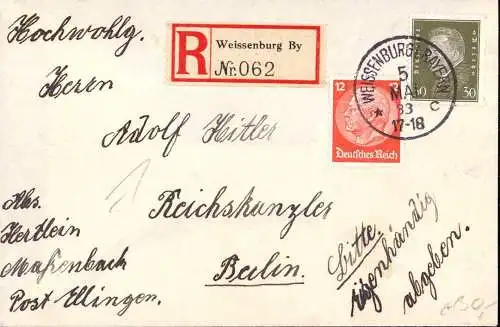 Hochwohlg.
Herrn
Adolf Hitler
Reichskanzler
Berlin.
R
Weissenburg By
Nr. 062
WEISSENBURG I. BAYERN
5
MAI
33 C
17-18
12
Deutsches Reich
30 30
Abs.
Hertlein
Massenbach
Post Ellingen.
Bitte
eigenhändig
abgeben.
1